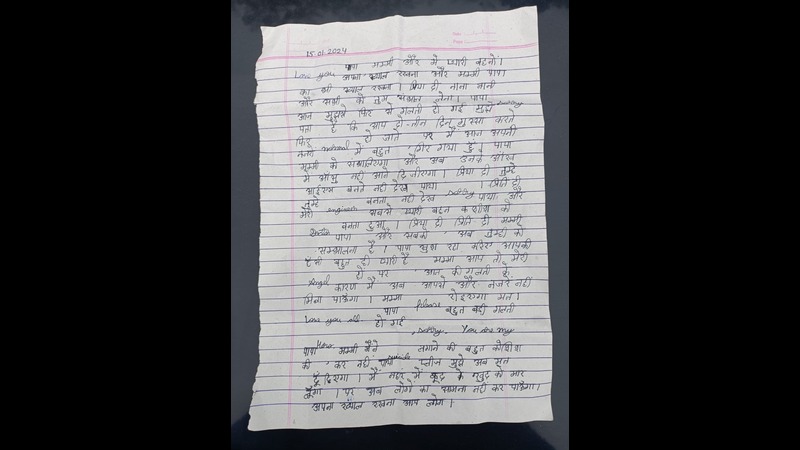 15.01.2024
पापा मम्मी और मेरी प्यारी बहनों।
Love you अपना ख्याल रखना और मम्मी पापा
का भी ख्याल रखना। प्रिया दी नाना नानी
और सभी को तुम संभाल लेना। पापा
आज मुझसे फिर से गलती हो गई मुझे
पता है कि आप दो-तीन दिन गुस्सा करते
फिर normal हो जाते पर मैं आज अपनी
नजरों में बहुत गिर गया हूँ। पापा
मम्मी को संभालिएगा और अब उनके आँख
में आँसू नहीं आने दीजिएगा। प्रिया दी तुम्हे
बनते नहीं देख पाया । प्रिति दी
तुम्हे engineer बनता नहीं देख पाया, और
मेरी सबसे प्यारी बहन
बनता हुआ। प्रिया दी प्रिति दी मम्मी
पापा और सबको अब तुम्ही को
सम्भालना है। पापा खुश रहा करिए आपकी
हँसी बहुत ही प्यारी है मम्मी आप तो मेरी
Angel हो पर आज की गलती के
कारण मैं अब आपसे और नजरें नहीं
मिला पाऊँगा। मम्मी please रोइएगा मत।
पापा बहुत बड़ी गलती
Love you all हो गई
, sorry, You are my
Hero.
पापा मम्मी मैंने लगाने की बहुत कोशिश
की कर नहीं पाया प्लीज मुझे अब
दीजिएगा। मैं नहर में कूद के खुद को मार
लूँगा। पर अब लोगों का सामना नहीं कर पाऊँगा।
अपना ख्याल रखना आप लोग।